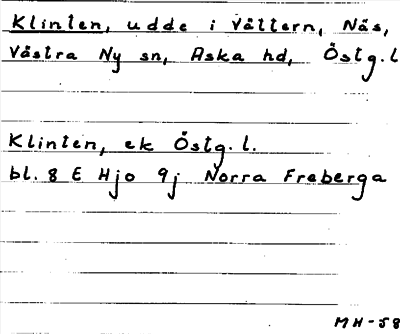 Klinten, udde i Vättern, Näs,
Västra Ny sn, Aska hd, Östg.l
Klinten, ek Östg.l.
bl. 8 E Hjo 9j Norra Freberga
MH-58